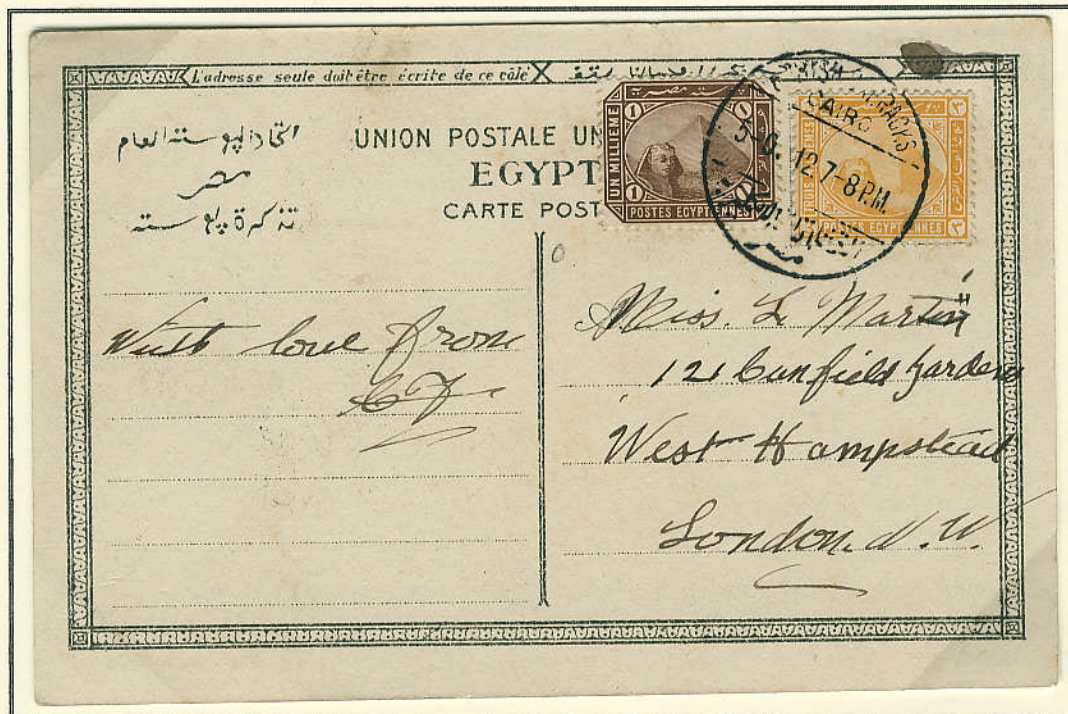 L'adresse seule doit être écrite de ce côté
اتحاد البوستة العام
مصر
تذكرة بوستة
UNION POSTALE UN
EGYPT
CARTE POST
بوستة مصرية
1 1
UN MILLIEME
1 1
POSTES EGYPTIENNES
BARRACKS
CAIRO
12 7-8 P.M.
مصر
TROIS MILLIEMES
POSTES EGYPTIENNES
With love from
Miss. L Martin
121 Canfield Gardens
West Hampstead
London. N. W.